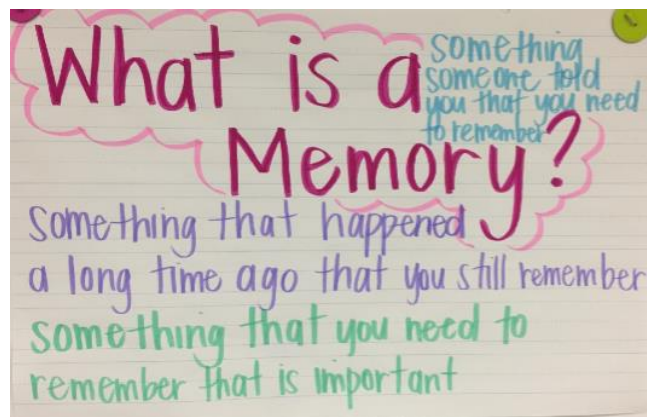 What is a
Memory?
something
someone told
you that you need
to remember
something that happened
a long time ago that you still remember
something that you need to
remember that is important